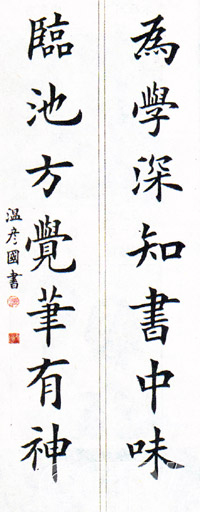 為學深知書中味
臨池方覺筆有神
溫彥國書